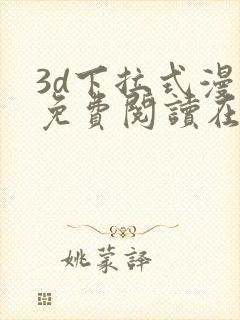 3d下拉式漫
免費閱讀在
姚蒙译